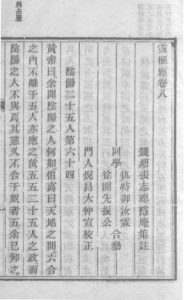 靈樞經卷八
錢塘張志聰隱庵集註
同學
仇時御汝霖
徐開先振公
合參
門人倪昌大仲宣校正
陰陽二十五人第六十四
黃帝曰余聞陰陽之人何如伯高曰天地之間六合
之內不離于五人亦應之故五五二十五人之政而
陰陽之人不與焉其態又不合于眾者五余已知之